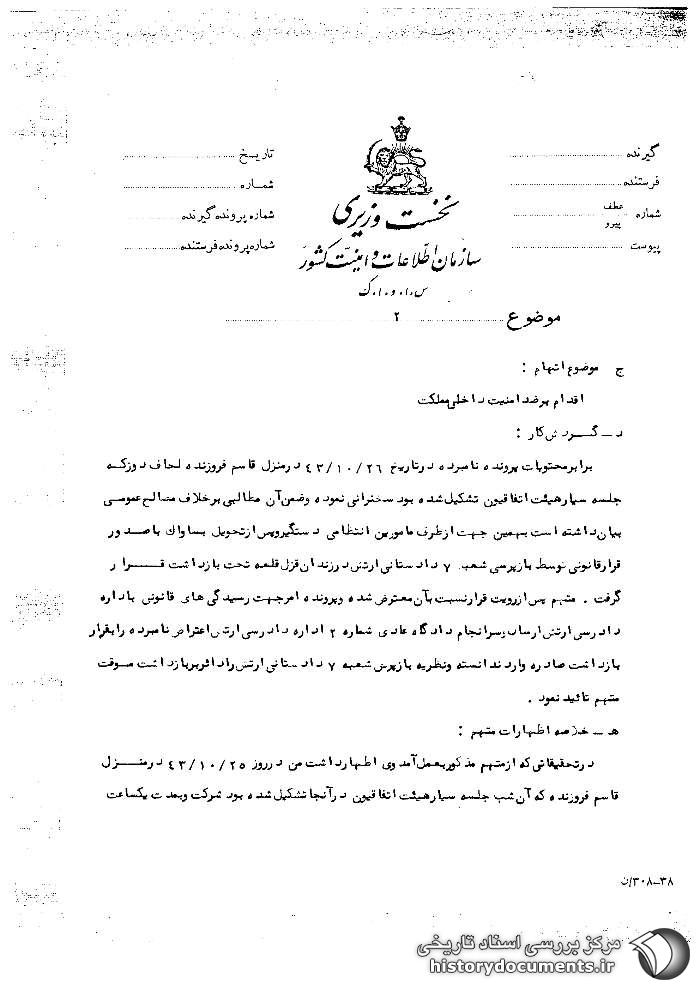 گیرنده
فرستنده
شماره عطف پیرو
پیوست
نخست وزیری
سازمان اطلاعات و امنیت کشور
س.ا.و.ا.ک
تاریخ
شماره
شماره پرونده گیرنده
شماره پرونده فرستنده
موضوع ۲
ج موضوع اتهام :
اقدام برضد امنیت داخلی مملکت
د ــ گــردش کار :
برابر محتویات پرونده نامبرده در تاریخ ۴۳/۱۰/۲۶ در منزل قاسم فروزنده لحاف دوز که
جلسه سیار هیئت اتفاقیون تشکیل شده بود سخنرانی نموده وضمن آن مطالبی برخلاف مصالح عمومی
بیان داشته است بهمین جهت از طرف مامورین انتظامی دستگیر وپس از تحویل بساواک با صدور
قرار قانونی توسط بازپرسی شعبه ۷ دادستانی ارتش در زندان قزل قلعه تحت بازداشت قــرار
گرفت . متهم پس از رویت قرار نسبت بآن معترض شده وپرونده امر جهت رسیدگی های قانونی باداره
دادرسی ارتش ارسال وسرانجام دادگاه عادی شماره ۲ اداره دادرسی ارتش اعتراض نامبرده را بقرار
بازداشت صادره وارد ندانسته ونظریه بازپرس شعبه ۷ دادستانی ارتش را دائر بر بازداشت موقت
متهم تائید نمود .
هـ ــ خلاصه اظهارات متهم :
در تحقیقاتی که از متهم مذکور بعمل آمد وی اظهار داشت من در روز ۴۳/۱۰/۲۵ در منــزل
قاسم فروزنده که آن شب جلسه سیار هیئت اتفاقیون در آنجا تشکیل شده بود شرکت وبمدت یکساعت
۳۸ــ۳۰۸/ن
مرکز بررسی اسناد تاریخی
historydocuments.ir